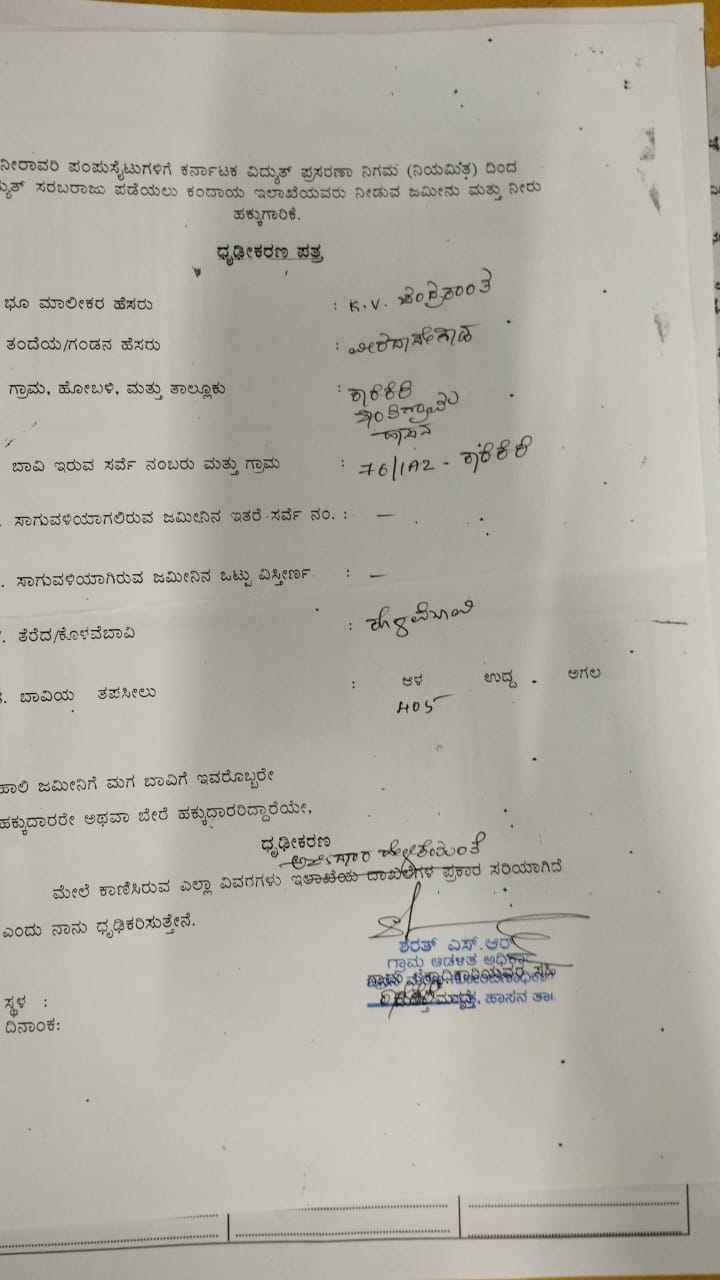 ನೀರಾವರಿ ಪಂಪುಸೈಟುಗಳಿಗೆ ಕರ್ನಾಟಕ ವಿದ್ಯುತ್ ಪ್ರಸರಣಾ ನಿಗಮ (ನಿಯಮಿತ) ದಿಂದ
ಸರಬರಾಜು ಪಡೆಯಲು ಕಂದಾಯ ಇಲಾಖೆಯವರು ನೀಡುವ ಜಮೀನು ಮತ್ತು ನೀರು
ಹಕ್ಕುಗಾರಿಕೆ.
ಧೃಢೀಕರಣ ಪತ್ರ
ಭೂ ಮಾಲೀಕರ ಹೆಸರು : K.V.
ತಂದೆಯ/ಗಂಡನ ಹೆಸರು :
ಗ್ರಾಮ, ಹೋಬಳಿ, ಮತ್ತು ತಾಲ್ಲೂಕು : ಕಾರೆಕೆರೆ
ಶಾಂತಿಗ್ರಾಮ
ಹಾಸನ
ಬಾವಿ ಇರುವ ಸರ್ವೆ ನಂಬರು ಮತ್ತು ಗ್ರಾಮ : 76/1A2 - ಕಾರೆಕೆರೆ
. ಸಾಗುವಳಿಯಾಗಲಿರುವ ಜಮೀನಿನ ಇತರೆ ಸರ್ವೆ ನಂ. : —
. ಸಾಗುವಳಿಯಾಗಿರುವ ಜಮೀನಿನ ಒಟ್ಟು ವಿಸ್ತೀರ್ಣ : —
. ತೆರೆದ/ಕೊಳವೆಬಾವಿ :
. ಬಾವಿಯ ತಪಸೀಲು : ಆಳ ಉದ್ದ . ಅಗಲ
405
ಹಾಲಿ ಜಮೀನಿಗೆ ಮಗ ಬಾವಿಗೆ ಇವರೊಬ್ಬರೇ
ಹಕ್ಕುದಾರರೇ ಅಥವಾ ಬೇರೆ ಹಕ್ಕುಧಾರರಿದ್ದಾರೆಯೇ,
ಧೃಢೀಕರಣ
ಮೇಲೆ ಕಾಣಿಸಿರುವ ಎಲ್ಲಾ ವಿವರಗಳು ಇಲಾಖೆಯ ದಾಖಲೆಗಳ ಪ್ರಕಾರ ಸರಿಯಾಗಿದೆ
ಎಂದು ನಾನು ಧೃಢಿಕರಿಸುತ್ತೇನೆ.
ಶರತ್ ಎಸ್.ಆರ್
ಗ್ರಾಮ ಆಡಳಿತ ಅಧಿಕಾರಿ
ಹಾಸನ ತಾ॥
ಸ್ಥಳ :
ದಿನಾಂಕ: